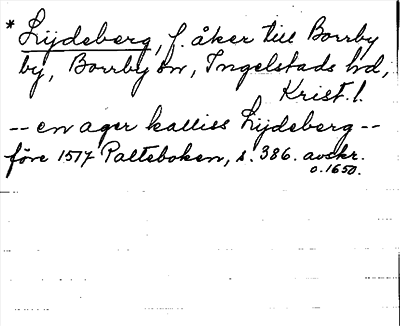 * Lijdeberg, f. åker till Borrby
by, Borrby sn, Ingelstads hd,
Krist. l.
-- en ager kalliss Lijdeberg --
före 1517 Palteboken, s. 386. avskr.
o. 1650.